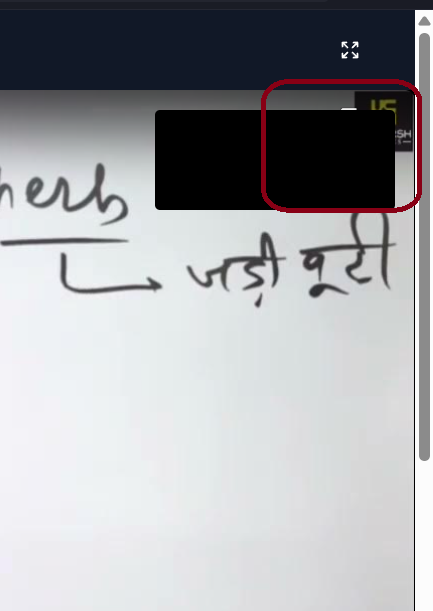 herb
जड़ी बूटी